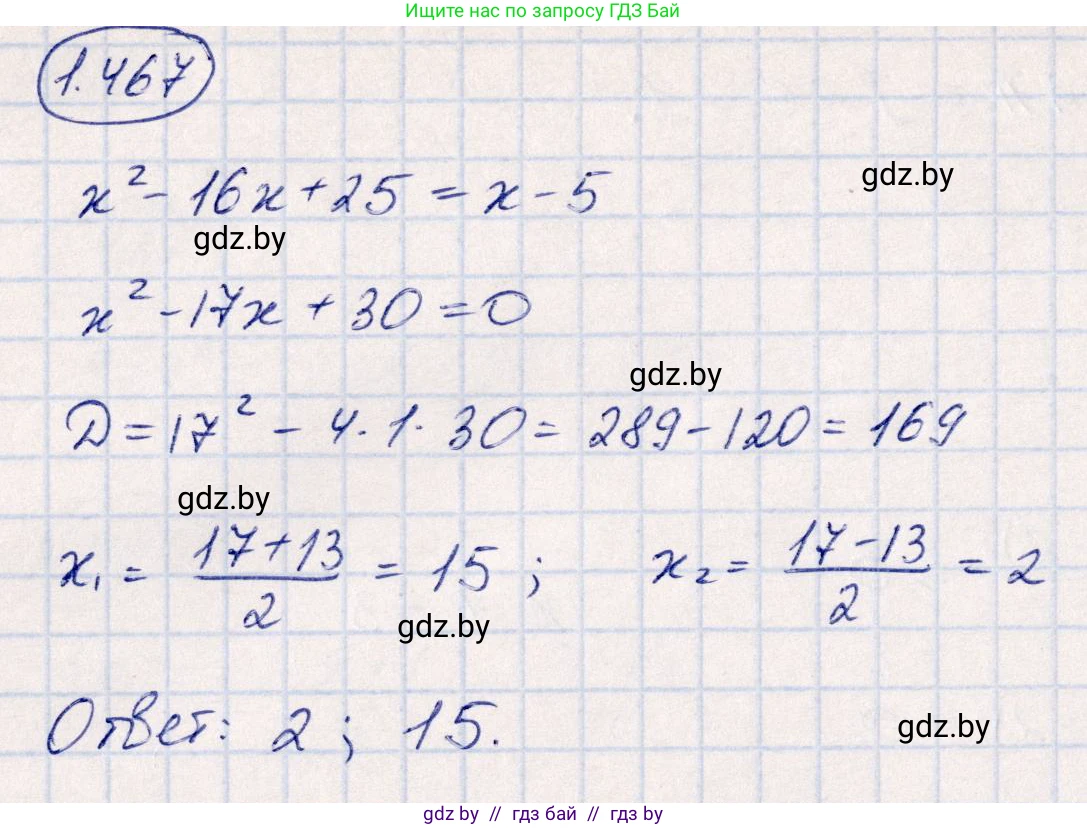 Ищите нас по запросу ГДЗ Бай
1.467
x² - 16x + 25 = x - 5
gdz.by
gdz.by
x² - 17x + 30 = 0
gdz.by
Д = 17² - 4 · 1 · 30 = 289 - 120 = 169
gdz.by
x₁ = (17 + 13)/2 = 15 ; x₂ = (17 - 13)/2 = 2
gdz.by
Ответ: 2 ; 15.
gdz.by
gdz by // гдз бай // гдз by